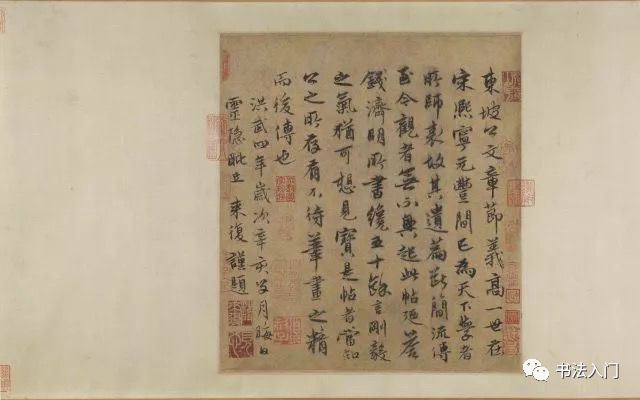 東坡公文章節義高一世在
宋熙寧元豐間已為天下學者
所師表故其遺篇斷簡流傳
至今觀者無不興起此帖迺答
錢濟明所書纔五十餘言剛毅
之氣猶可想見寶是帖者當知
公之所存有不待筆畫之精
而後傳也
洪武四年歲次辛亥月晦日
靈隱毗丘 來復 謹題
书法入门